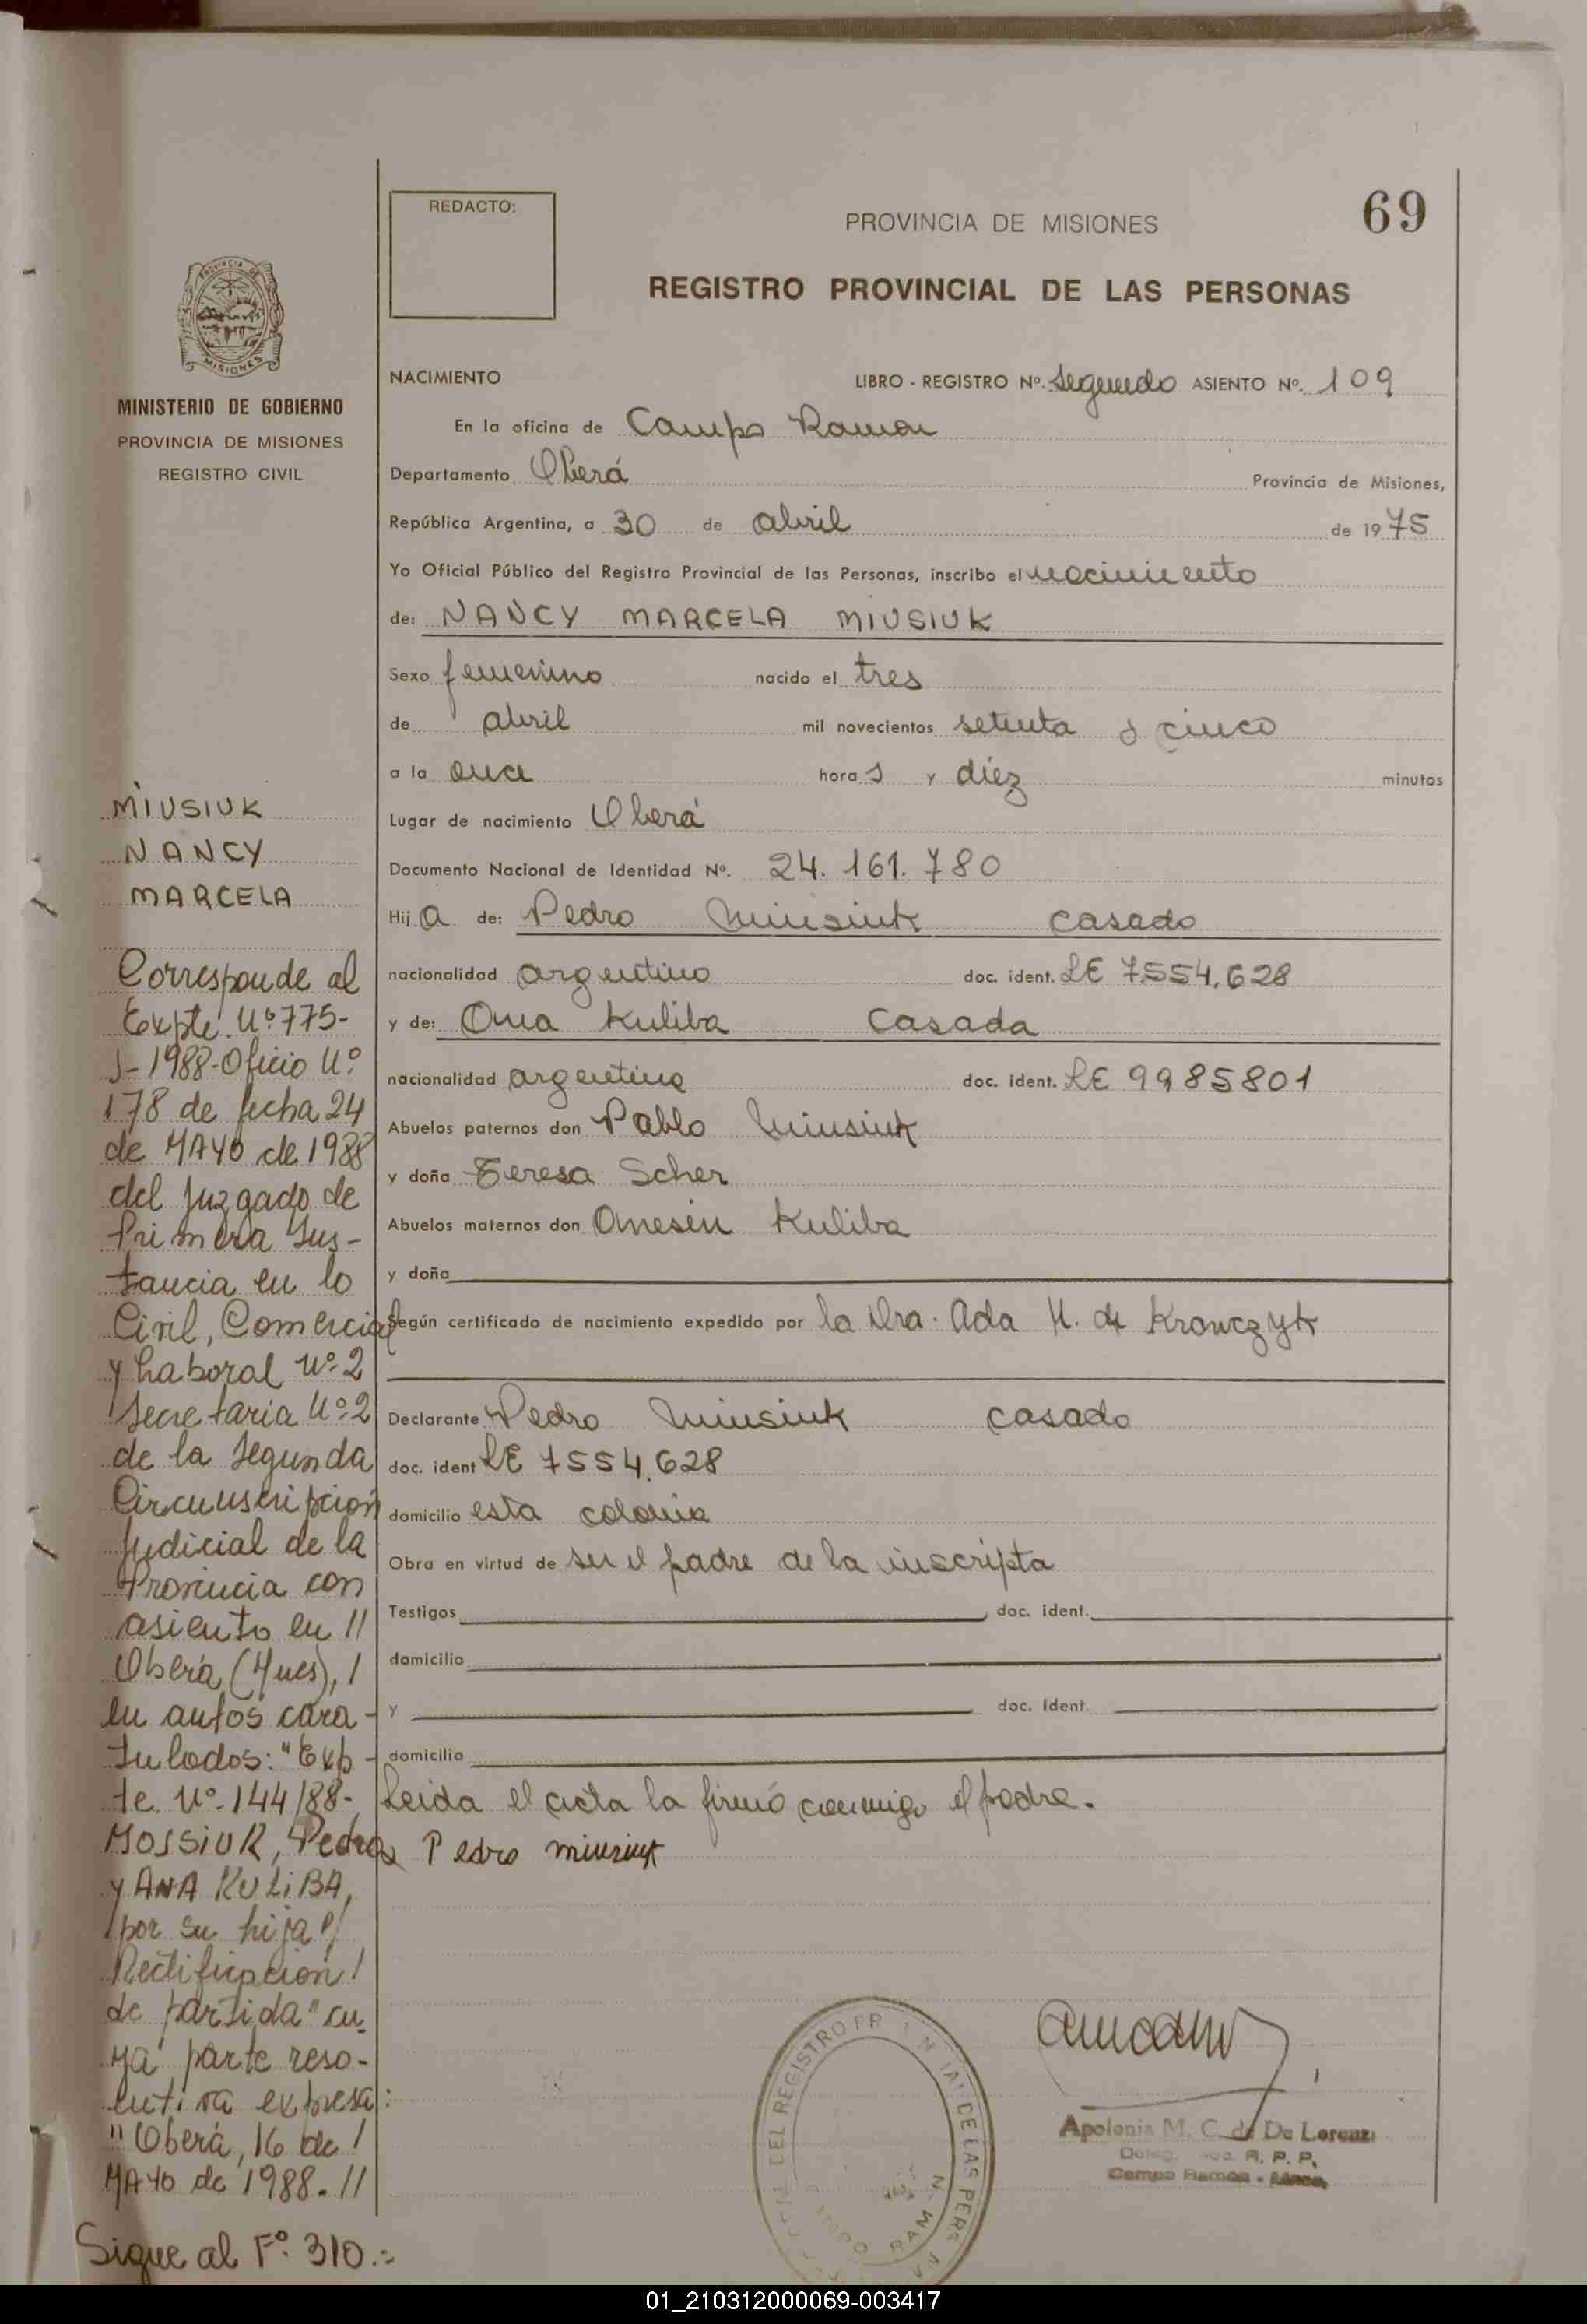 69
REDACTO:
PROVINCIA DE MISIONES
REGISTRO PROVINCIAL DE LAS PERSONAS
PROVINCIA DE
MISIONES
MINISTERIO DE GOBIERNO
PROVINCIA DE MISIONES
REGISTRO CIVIL
NACIMIENTO LIBRO - REGISTRO Nº. Segundo ASIENTO Nº. 109
En la oficina de Campo Ramon
Departamento Oberá Provincia de Misiones,
República Argentina, a 30 de abril de 1975
Yo Oficial Público del Registro Provincial de las Personas, inscribo el nacimiento
de: NANCY MARCELA MIUSIUK
Sexo femenino nacido el tres
de abril mil novecientos setenta y cinco
a la once horas y diez minutos
Lugar de nacimiento Oberá
Documento Nacional de Identidad Nº. 24.161.780
Hija de: Pedro Miusiuk casado
nacionalidad argentino doc. ident. LE 7.554.628
y de: Ana Kuliba casada
nacionalidad argentina doc. ident. LE 9985801
Abuelos paternos don Pablo Miusiuk
y doña Teresa Scher
Abuelos maternos don Onesin Kuliba
y doña
Según certificado de nacimiento expedido por la Dra. Ada H. de Krawczyk
Declarante Pedro Miusiuk casado
doc. ident LE 7554.628
domicilio esta colonia
Obra en virtud de ser el padre de la inscripta
Testigos doc. ident.
domicilio
y doc. Ident.
domicilio
Leida el acta la firmó conmigo el padre.
Pedro miusiuk
MIUSIUK
NANCY
MARCELA
Corresponde al
Expte. Nº 775-
J-1988-Oficio Nº
178 de fecha 24
de MAYO de 1988
del Juzgado de
Primera Ins-
tancia en lo
Civil, Comercial
y Laboral Nº 2
Secretaria Nº 2
de la Segunda
Circunscripcion
Judicial de la
Provincia con
asiento en //
Oberá, (Mnes), /
en autos cara-
tulados: "Exp-
te. Nº. 144/88-
MOSSIUK, Pedro
y ANA KULIBA,
por su hija /
Rectificacion /
de partida" cu-
ya parte reso-
lutiva expresa:
"Oberá, 16 de /
MAYO de 1988. //
Sigue al Fº. 310.=
DEL REGISTRO DE LAS PERS
Apolonia M. C. de De Lorenzi
R. P. P.
Campo Ramón - Mnes.
01_210312000069-003417